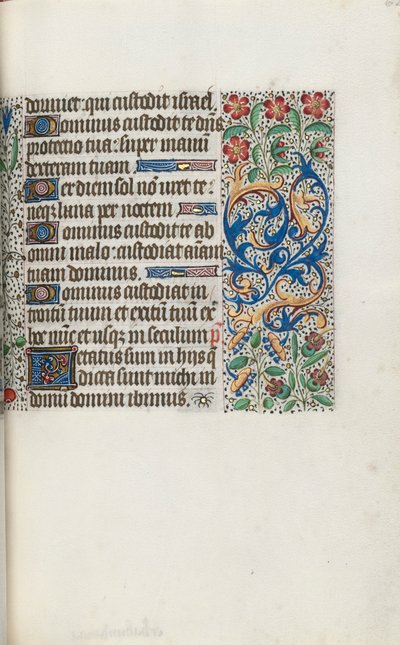 dormiet qui custodit israel.
Dominus custodit te dns
protectio tua: super manū
dexteram tuam.
Per diem sol nō uret te:
neqz luna per noctem
Dominus custodit te ab
omni malo: custodiat aīam
tuam dominus.
Dominus custodiat in
troitū tuum et exitū tuū ex
hoc nūc et usqz in seculum. p̄s
Letatus sum in hijs q̄
dicta sunt michi in
domū domini ibimus.